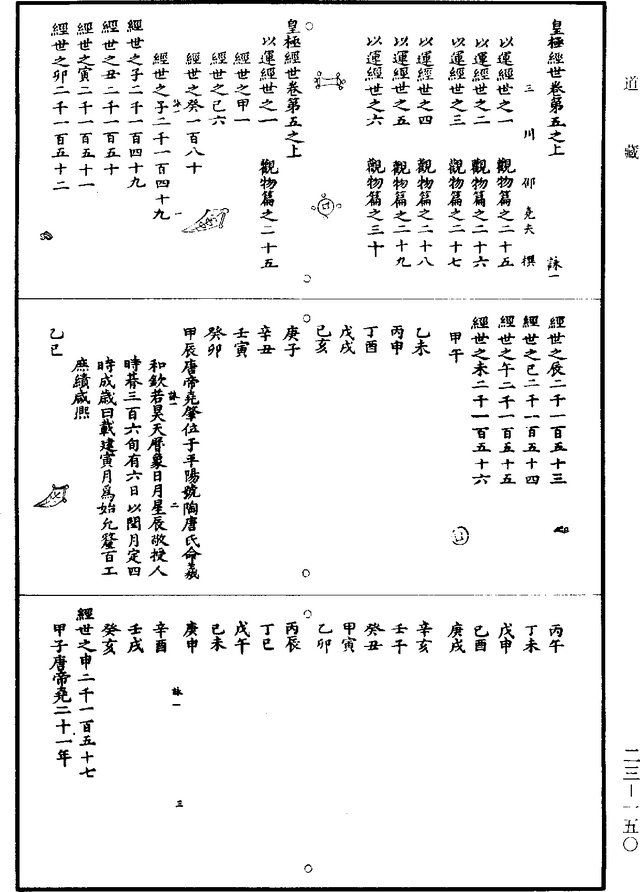 道藏
皇極經世卷第五之上 詠一
三川邵堯夫撰
以運經世之一 觀物篇之二十五
以運經世之二 觀物篇之二十六
以運經世之三 觀物篇之二十七
以運經世之四 觀物篇之二十八
以運經世之五 觀物篇之二十九
以運經世之六 觀物篇之三十
皇極經世卷第五之上
以運經世之一 觀物篇之二十五
經世之甲一
經世之己六
經世之癸一百八十
詠一 一
經世之子二千一百四十九
經世之子二千一百四十九
經世之丑二千一百五十
經世之寅二千一百五十一
經世之卯二千一百五十二
經世之辰二千一百五十三
經世之巳二千一百五十四
經世之午二千一百五十五
經世之未二千一百五十六
甲午
乙未
丙申
丁酉
戊戌
己亥
庚子
辛丑
壬寅
癸卯
甲辰唐帝堯肇位于平陽號陶唐氏命羲
詠一 二
和欽若昊天曆象日月星辰敬授人
時朞三百六旬有六日以閏月定四
時成歲曰載建寅月爲始允釐百工
庶績咸熙
乙巳
丙午
丁未
戊申
己酉
庚戌
辛亥
壬子
癸丑
甲寅
乙卯
丙辰
丁巳
戊午
己未
庚申
詠一 三
辛酉
壬戌
癸亥
經世之申二千一百五十七
甲子唐帝堯二十一年
二三—一五〇